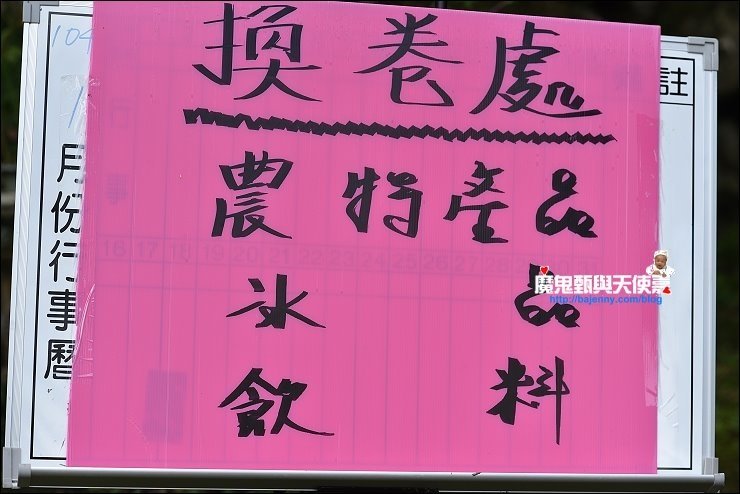 換卷處
農特產品
冰品
飲料
104
月份行事曆
註
行
事
16 17 18 19 20 21 22 23 24 25 26 27
魔鬼甄與天使嘉
http://bajenny.com/blog